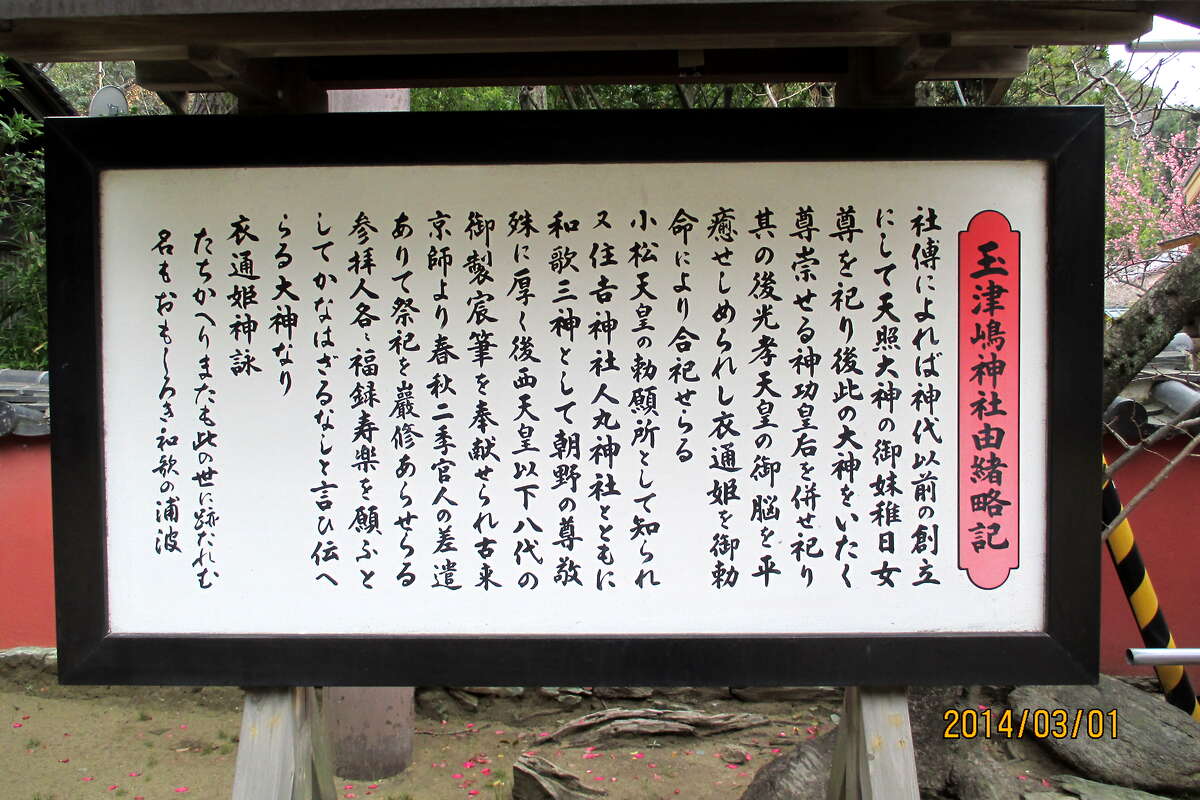 玉津嶋神社由緒略記
社傳によれば神代以前の創立
にして天照大神の御妹稚日女
尊を祀り後此の大神をいたく
尊崇せる神功皇后を併せ祀り
其の後光孝天皇の御脳を平
癒せしめられし衣通姫を御勅
命により合祀せらる
小松天皇の勅願所として知られ
又住吉神社人丸神社とともに
和歌三神として朝野の尊敬
殊に厚く後西天皇以下八代の
御製宸筆を奉献せられ古来
京師より春秋二季官人の差遣
ありて祭祀を嚴修あらせらる
参拝人各〻福録寿楽を願ふと
してかなはざるなしと言ひ伝へ
らる大神なり
衣通姫神詠
たちかへりまたも此の世に跡たれむ
名もおもしろき和歌の浦波
2014/03/01